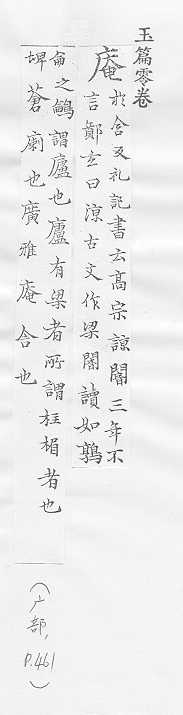 玉篇零卷
庵 於含反礼記書云高宗諒闇三年不
言鄭玄曰諒古文作梁闇讀如鶉
䳺之䳺謂廬也廬有梁者所謂柱楣者也
埤蒼廟也廣雅庵舍也
(广部,
P.461)